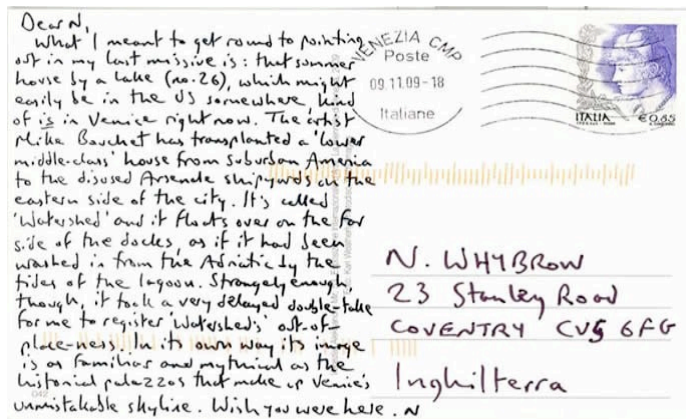 Dear N,
What I meant to get round to pointing
out in my last missive is: that summer
house by a lake (no. 26), which might
easily be in the US somewhere, kind
of is in Venice right now. The artist
Mike Bouchet has transplanted a 'lower
middle-class' house from suburban America
to the disused Arsenale shipyards on the
eastern side of the city. It's called
'Watershed' and it floats over on the far
side of the docks, as if it had been
washed in from the Adriatic by the
tides of the lagoon. Strangely enough,
though, it took a very delayed double-take
for me to register 'Watershed's' out-of-
place-ness. In its own way its image
is as familiar and mythical as the
historical palazzos that make up Venice's
unmistakable skyline. Wish you were here. N
042
VENEZIA CMP
Poste
09.11.09-18
Italiane
ITALIA €0,85
N. WHYBROW
23 Stanley Road
COVENTRY CV5 6FG
Inghilterra